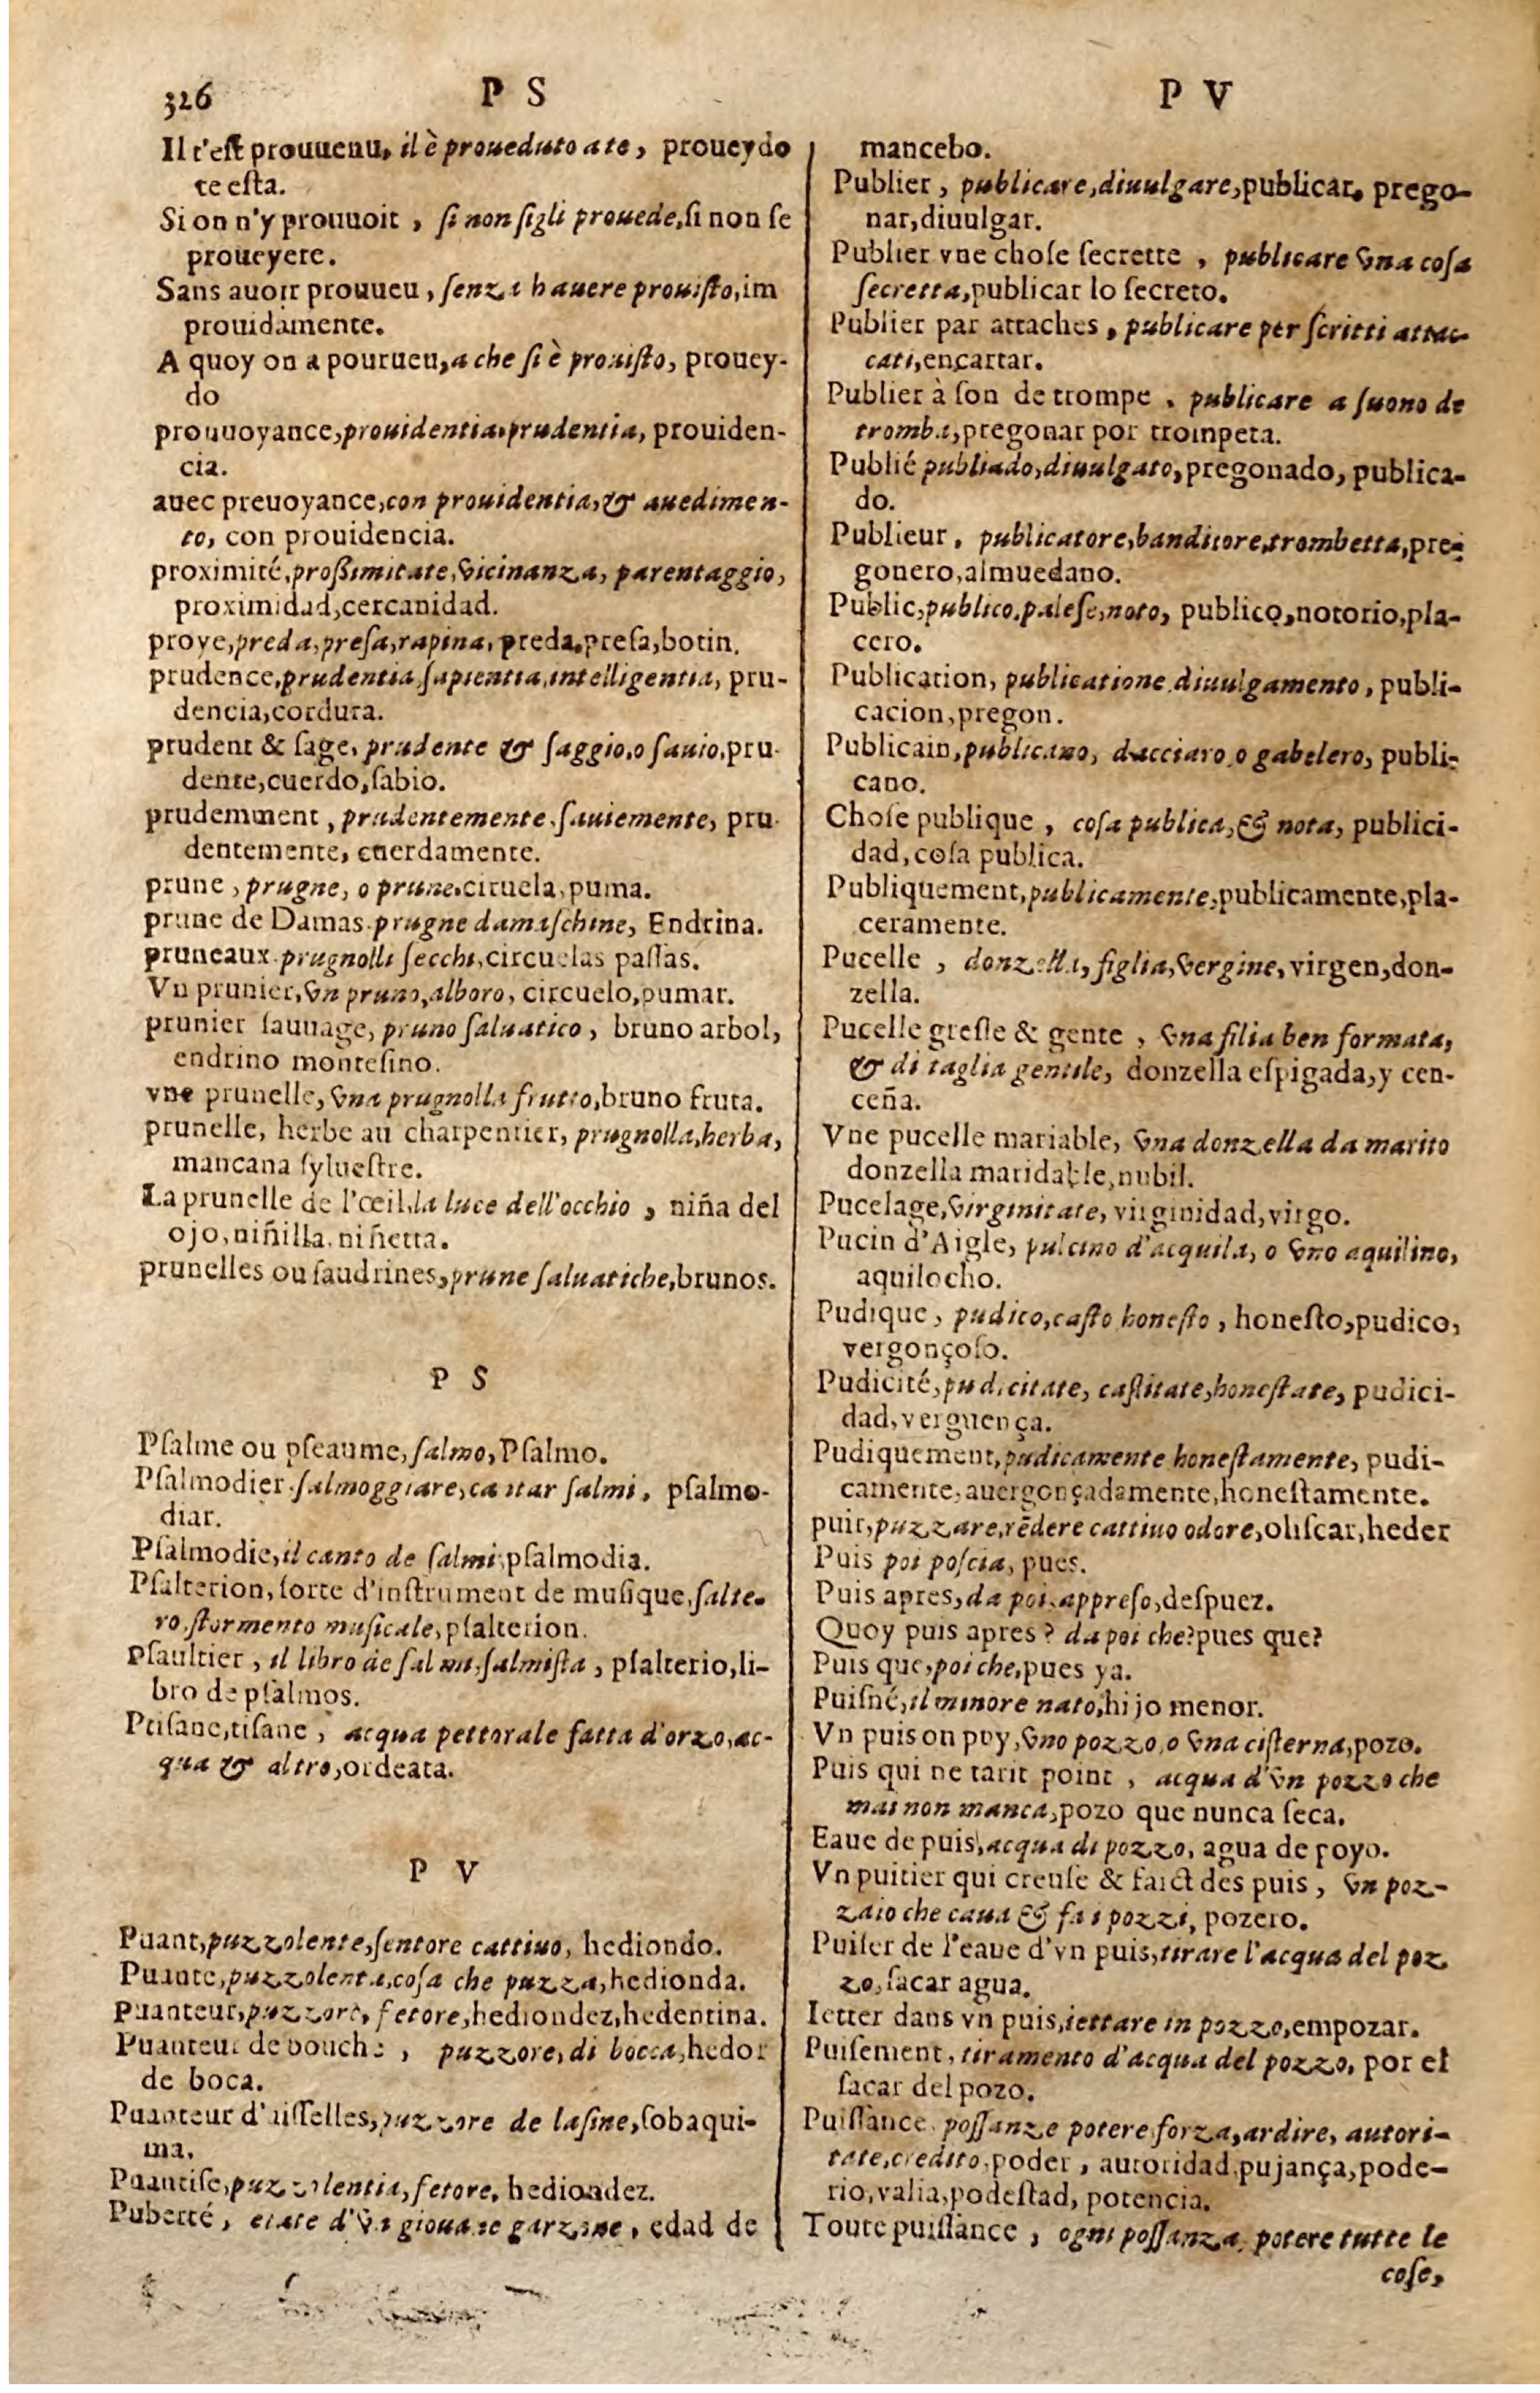 326
P S
P V
Il t'eſt prouuenu, il è proueduto a te, proueydo
te eſta.
Si on n'y prouuoit, ſi non ſigli prouede, ſi non ſe
proueyere.
Sans auoir prouueu, ſenza hauere prouiſto, im
prouidamente.
A quoy on a pourueu, a che ſi è prouiſto, prouey-
do
prouuoyance, prouidentia, prudentia, prouiden-
cia.
auec preuoyance, con prouidentia, & auedimen-
to, con prouidencia.
proximité, proßimitate, vicinanza, parentaggio,
proximidad, cercanidad.
proye, preda, preſa, rapina, preda, preſa, botin.
prudence, prudentia, ſapientia, intelligentia, pru-
dencia, cordura.
prudent & ſage, prudente & ſaggio, o ſauio, pru-
dente, cuerdo, ſabio.
prudemment, prudentemente, ſauiemente, pru-
dentemente, cuerdamente.
prune, prugne, o prune, ciruela, puma.
prune de Damas. prugne damaſchine, Endrina.
pruneaux. prugnolli ſecchi, circuelas paſſas.
Vn prunier, vn pruno, alboro, circuelo, pumar.
prunier ſauuage, pruno ſaluatico, bruno arbol,
endrino monteſino.
vne prunelle, vna prugnolla frutto, bruno fruta.
prunelle, herbe au charpentier, prugnolla, herba,
mancana ſylueſtre.
La prunelle de l'œil, la luce dell'occhio, niña del
ojo, niñilla, niñetta.
prunelles ou ſaudrines, prune ſaluatiche, brunos.
P S
Pſalme ou pſeaume, ſalmo, Pſalmo.
Pſalmodier. ſalmoggiare, cantar ſalmi, pſalmo-
diar.
Pſalmodie, il canto de ſalmi, pſalmodia.
Pſalterion, ſorte d'inſtrument de muſique, ſalte-
ro, ſtormento muſicale, pſalterion.
Pſaultier, il libro de ſalmi, ſalmiſta, pſalterio, li-
bro de pſalmos.
Ptiſane, tiſane, acqua pettorale fatta d'orzo, ac-
qua & altro, ordeata.
P V
Puant, puzzolente, ſentore cattiuo, hediondo.
Puante, puzzolenta, coſa che puzza, hedionda.
Puanteur, puzzore, fetore, hediondez, hedentina.
Puanteur de bouche, puzzore, di bocca, hedor
de boca.
Puanteur d'aiſſelles, puzzore de laſine, ſobaqui-
ma.
Puantiſe, puzzolentia, fetore, hediondez.
Puberté, etate d'vn giouane garzone, edad de
mancebo.
Publier, publicare, diuulgare, publicar, prego-
nar, diuulgar.
Publier vne choſe ſecrette, publicare vna coſa
ſecretta, publicar lo ſecreto.
Publier par attaches, publicare per ſcritti attac-
cati, encartar.
Publier à ſon de trompe, publicare a ſuono de
tromba, pregonar por trompeta.
Publié publiado, diuulgato, pregonado, publica-
do.
Publieur, publicatore, banditore, trombetta, pre-
gonero, almuedano.
Public, publico, paleſe, noto, publico, notorio, pla-
cero.
Publication, publicatione, diuulgamento, publi-
cacion, pregon.
Publicain, publicano, dacciaro o gabelero, publi-
cano.
Choſe publique, coſa publica, & nota, publici-
dad, coſa publica.
Publiquement, publicamente, publicamente, pla-
ceramente.
Pucelle, donzella, figlia, vergine, virgen, don-
zella.
Pucelle greſle & gente, vna filia ben formata,
& di taglia gentile, donzella eſpigada, y cen-
ceña.
Vne pucelle mariable, vna donzella da marito
donzella maridable, nubil.
Pucelage, virginitate, virginidad, virgo.
Pucin d'Aigle, pulcino d'acquila, o vno aquilino,
aquilocho.
Pudique, pudico, caſto honeſto, honeſto, pudico,
vergonçoſo.
Pudicité, pudicitate, caſtitate, honeſtate, pudici-
dad, verguença.
Pudiquement, pudicamente honeſtamente, pudi-
camente, auergonçadamente, honeſtamente.
puir, puzzare, rēdere cattiuo odore, oliſcar, heder
Puis poi poſcia, pues.
Puis apres, da poi, appreſo, deſpuez.
Quoy puis apres? da poi che? pues que?
Puis que, poi che, pues ya.
Puiſné, il minore nato, hijo menor.
Vn puis on puy, vno pozzo, o vna ciſterna, pozo.
Puis qui ne tarit point, acqua d'vn pozzo che
mai non manca, pozo que nunca ſeca.
Eaue de puis, acqua di pozzo, agua de poyo.
Vn puitier qui creuſe & faict des puis, vn poz-
zaio che caua & fa i pozzi, pozero.
Puiſer de l'eaue d'vn puis, tirare l'acqua del poz
zo, ſacar agua.
Ietter dans vn puis, iettare in pozzo, empozar.
Puiſement, tiramento d'acqua del pozzo, por el
ſacar del pozo.
Puiſſance, poſſanze potere, forza, ardire, autori-
tate, credito, poder, autoridad, pujança, pode-
rio, valia, podeſtad, potencia.
Toute puiſſance, ogni poſſanza, potere tutte le
coſe,